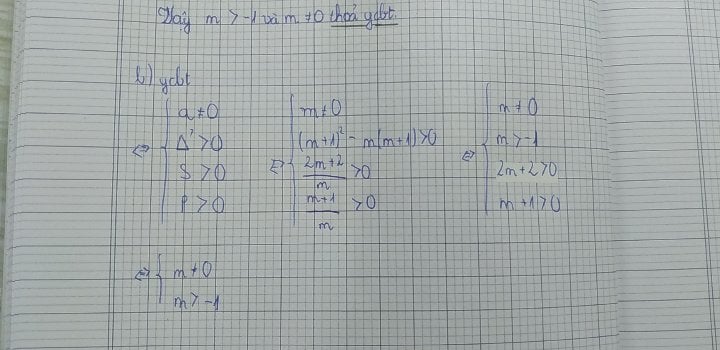 Vậy m > -1 và m ≠ 0 thoả ycbt.
b) ycbt
⇔ { a ≠ 0
Δ' > 0
S > 0
P > 0
⇔ { m ≠ 0
(m+1)² - m(m+1) > 0
(2m+2)/m > 0
(m+1)/m > 0
⇔ { m ≠ 0
m > -1
2m+2 > 0
m+1 > 0
⇔ { m ≠ 0
m > -1